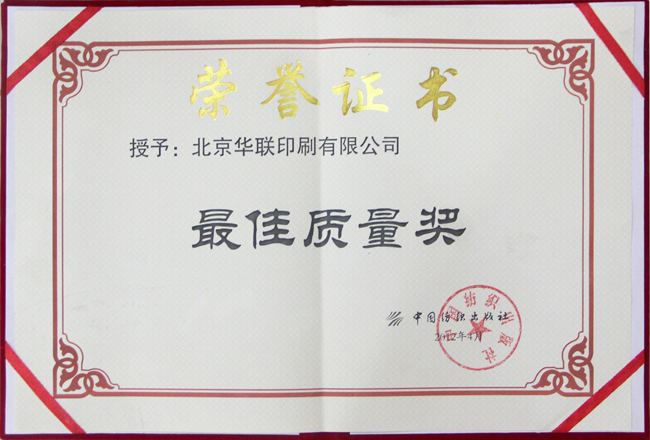 荣誉证书
授予：北京华联印刷有限公司
最佳质量奖
中国纺织出版社
2012年4月
中国纺织出版社